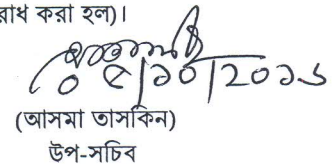 রাধ করা হল)।
০৫/১০/২০১৬
(আসমা তাসকিন)
উপ-সচিব